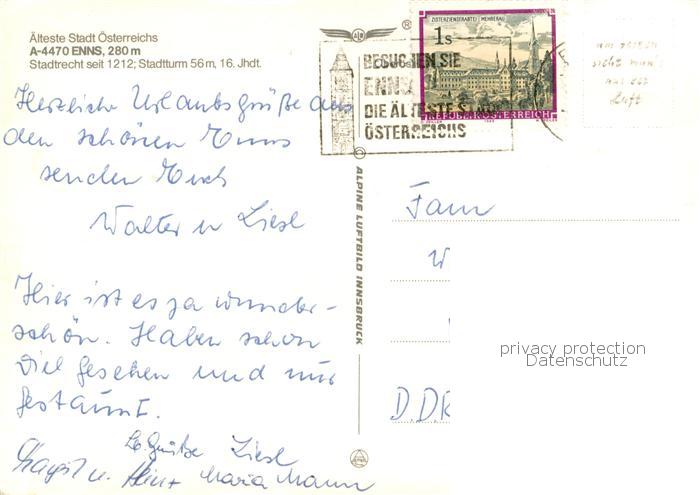 Älteste Stadt Österreichs
A-4470 ENNS, 280 m
Stadtrecht seit 1212; Stadtturm 56 m, 16. Jhdt.
Herzliche Urlaubsgrüße aus
dem schönen Enns
senden Euch
Walter u Liesl
Hier ist es ja wunder-
schön. Haben schon
viel gesehen und nur
gestaunt.
Lb. Grüße Liesl
u. Heinz Maria Mann
®
ZISTERZIENSERABTEI MEHRERAU
1s
REPUBLIK ÖSTERREICH
BESUCHEN SIE
ENNS
DIE ÄLTESTE STADT
ÖSTERREICHS
© ALPINE LUFTBILD INNSBRUCK
am
sieht man's
aus der
Luft
Fam
W
D.D.R
privacy protection
Datenschutz